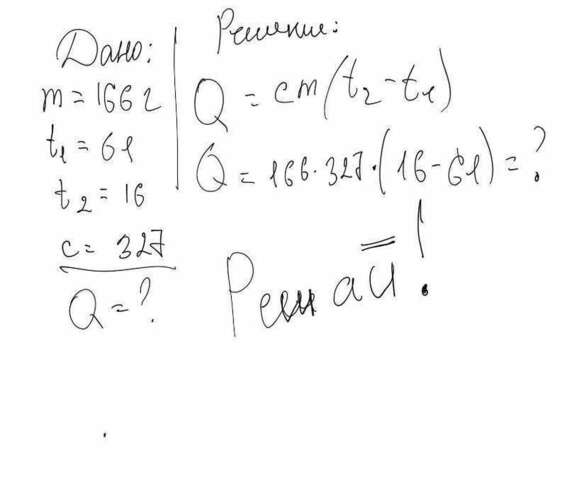 Дано:
m = 166 г
t₁ = 61
t₂ = 16
c = 327
Q = ?
Решение:
Q = cm(t₂ - t₁)
Q = 166 · 327 · (16 - 61) = ?
Решай!